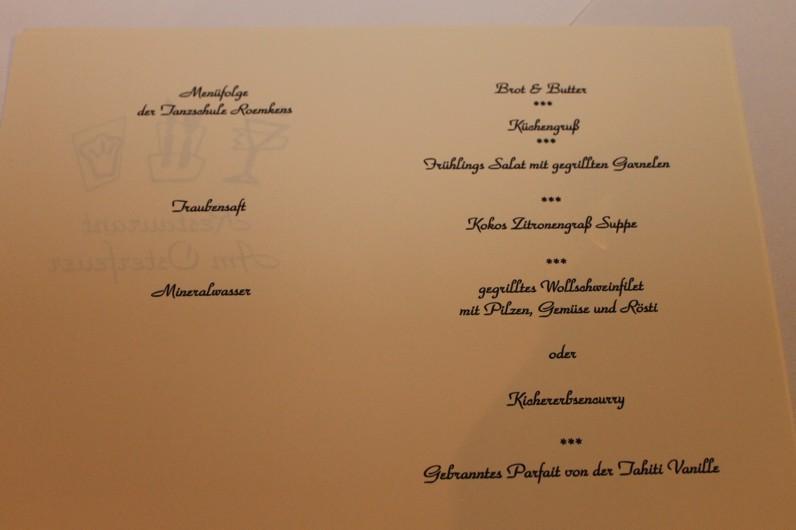 Menüfolge
der Tanzschule Roemkens
Traubensaft
Mineralwasser
Restaurant
Am Osterfeuer
Brot & Butter
***
Küchengruß
***
Frühlings Salat mit gegrillten Garnelen
***
Kokos Zitronengraß Suppe
***
gegrilltes Wollschweinfilet
mit Pilzen, Gemüse und Rösti
oder
Kichererbsencurry
***
Gebranntes Parfait von der Tahiti Vanille